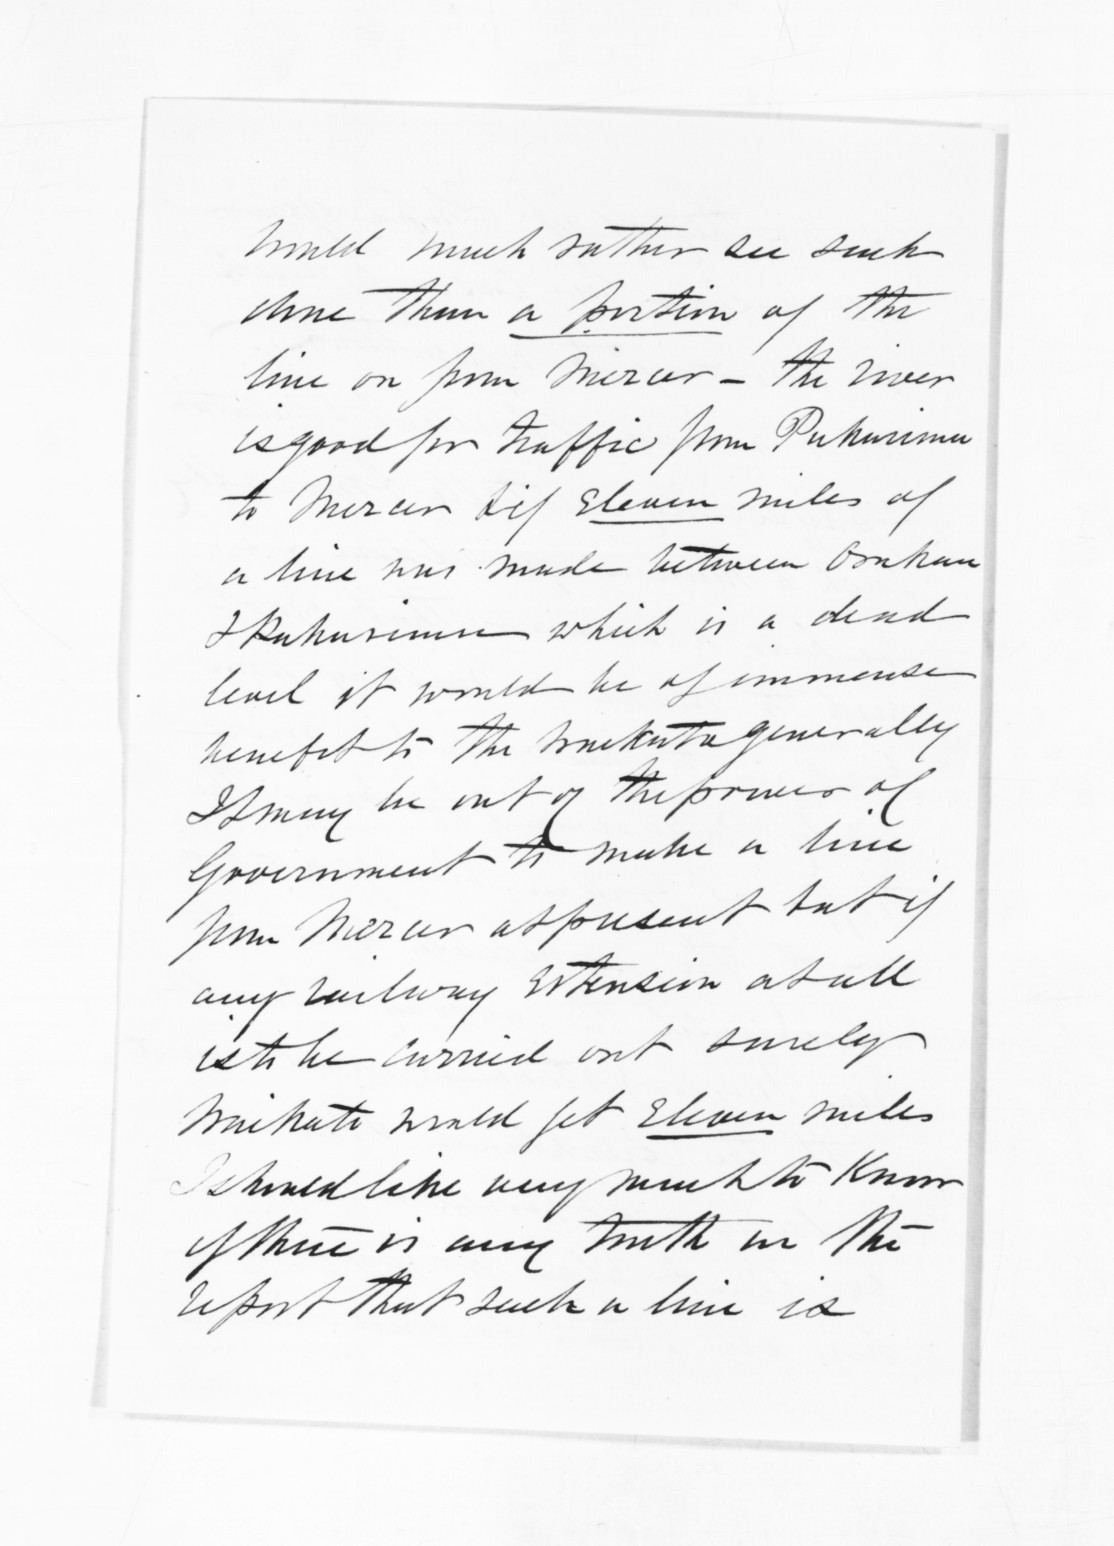 would much rather see such
done than a portion of the
line on from Mercer – the river
is good for traffic from Pukerimu
to Mercer & if Eleven miles of
a line was made between Orakau
& Pukerimu which is a dead
level it would be of immense
benefit to the Waikato generally
It may be out of the power of
Government to make a line
from Mercer at present but if
any railway Extension at all
is to be carried out surely
Waikato would get Eleven miles
I should like very much to Know
if there is any truth in the
report that such a line is